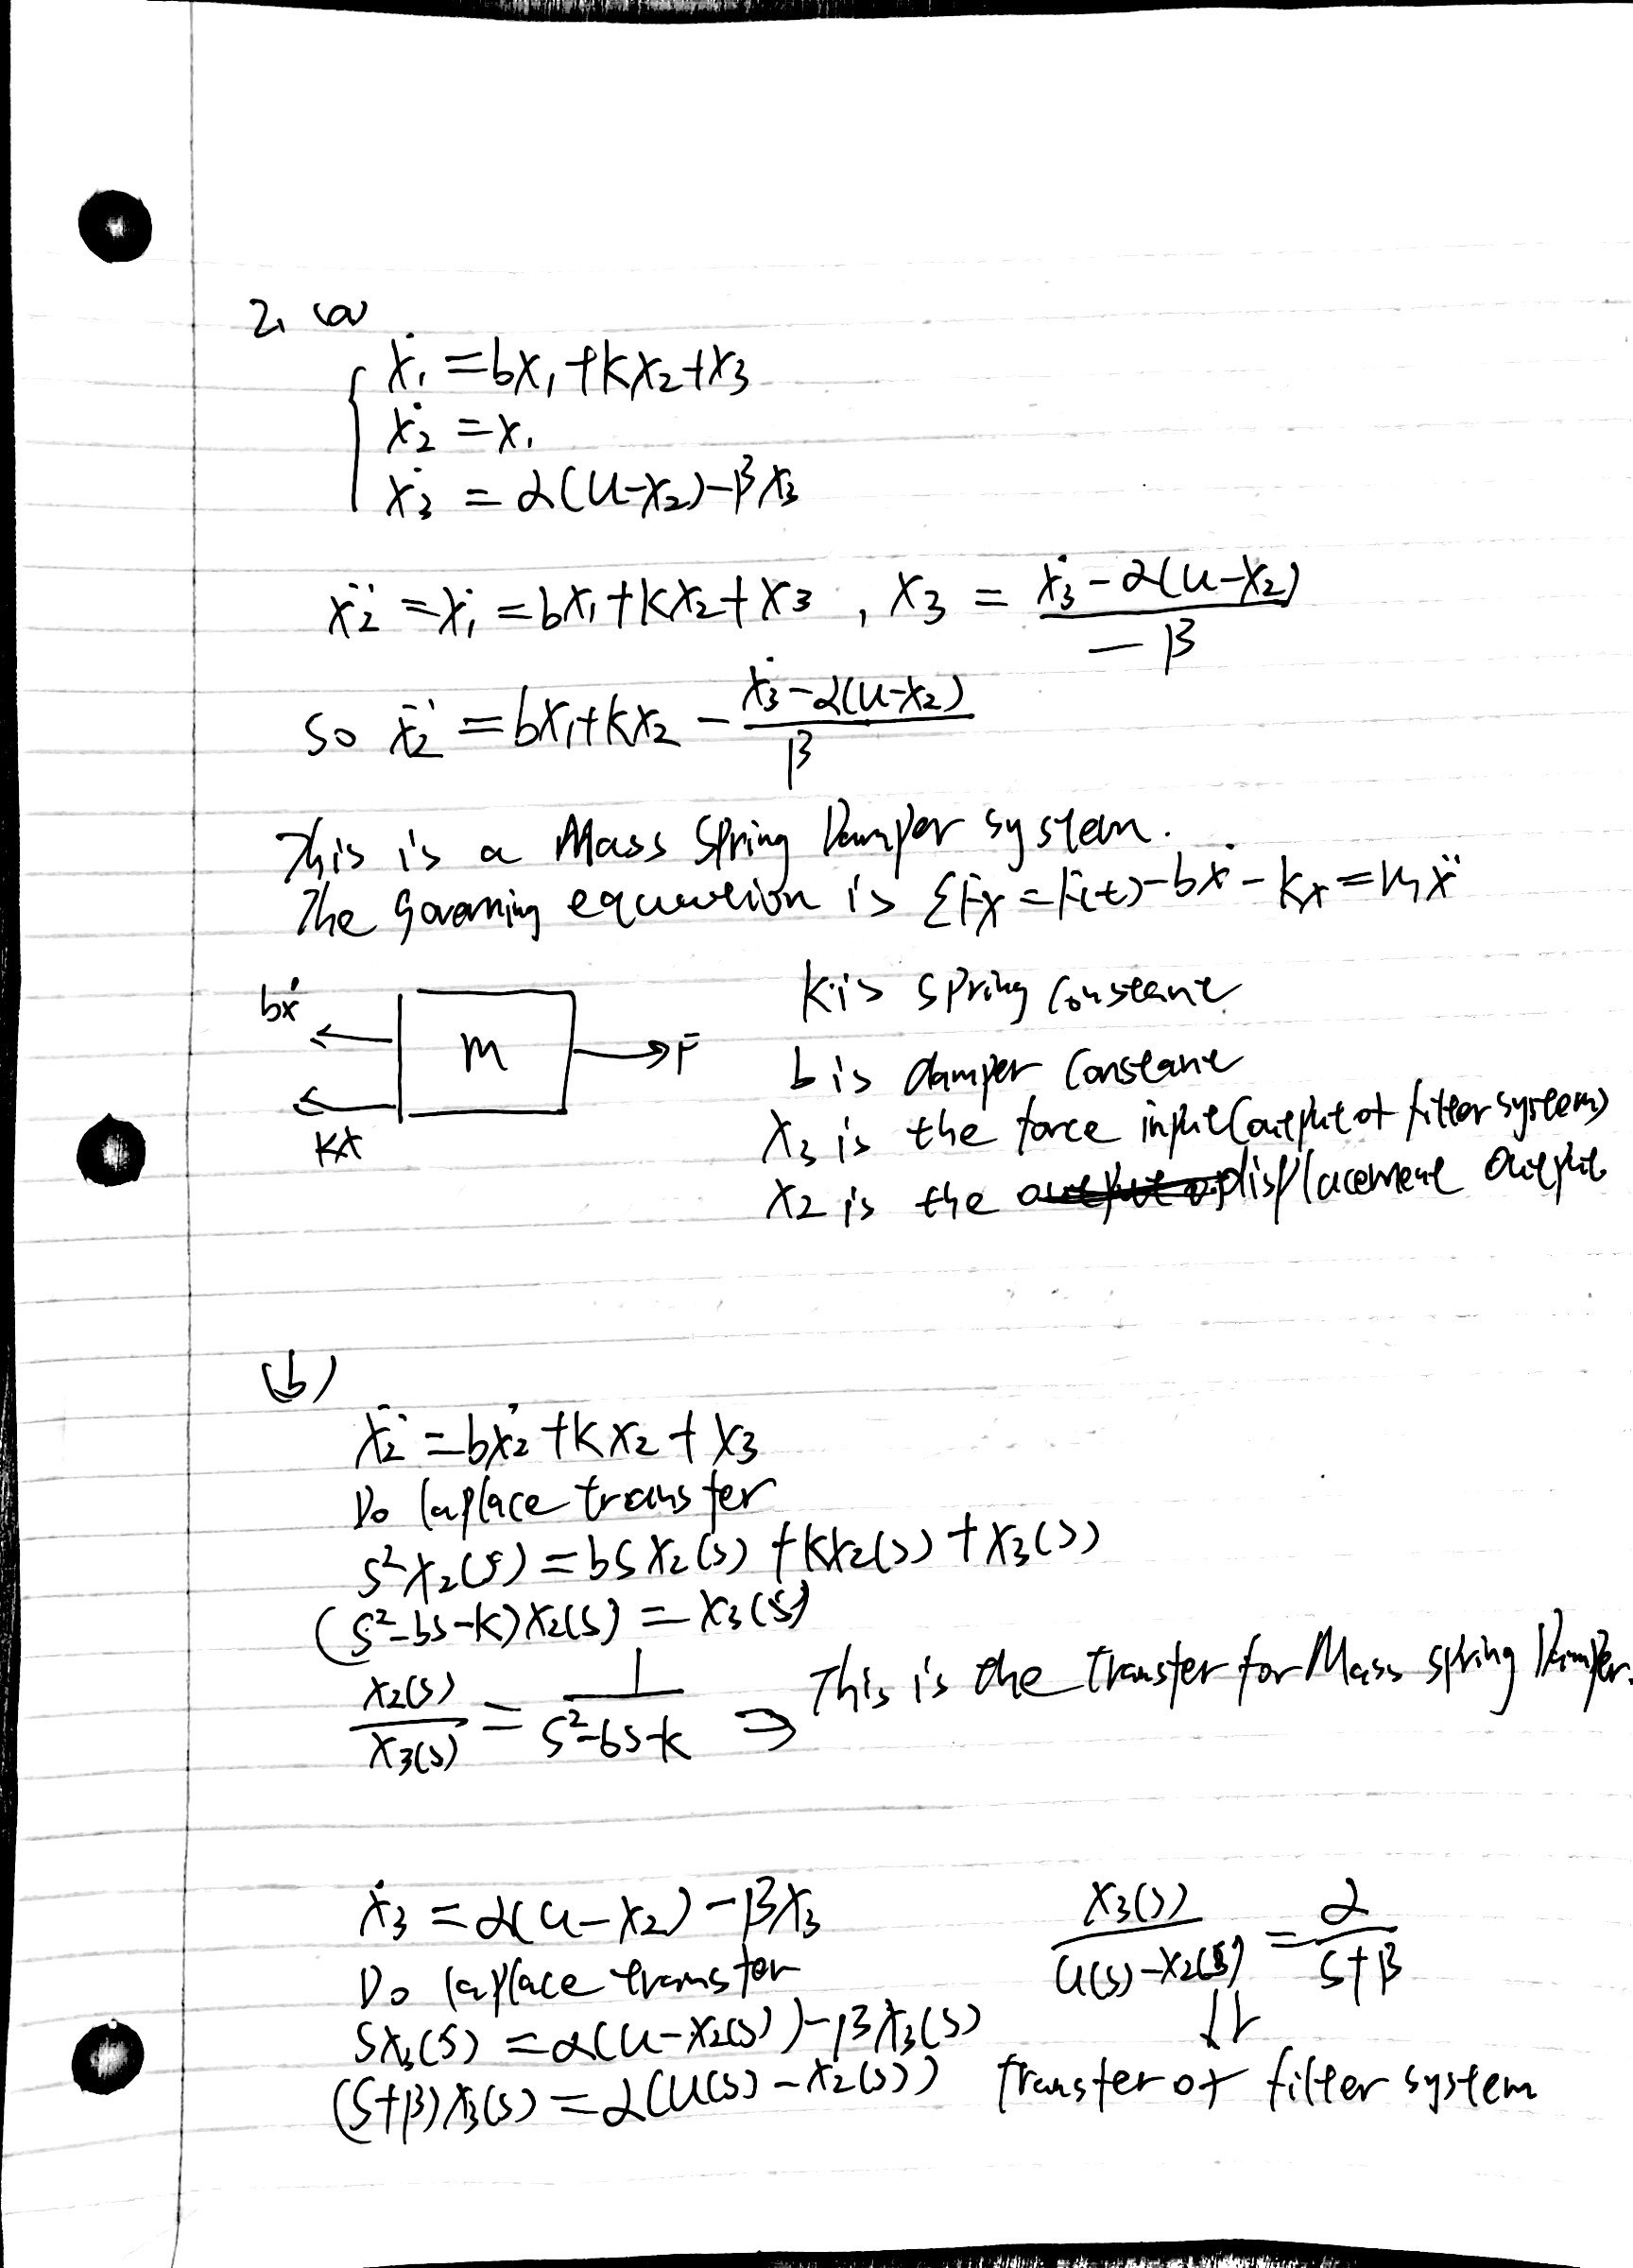 2. (a)
ẋ₁ = bx₁ + kx₂ + x₃
ẋ₂ = x₁
ẋ₃ = α(u-x₂) - βx₃
ẍ₂ = ẋ₁ = bx₁ + kx₂ + x₃ , x₃ = (ẋ₃ - α(u-x₂)) / -β
so ẍ₂ = bx₁ + kx₂ - (ẋ₃ - α(u-x₂)) / β
This is a Mass Spring Damper system.
The governing equation is ΣFx = F(t) - bẋ - kx = mẍ
bẋ
m
F
kx
k is spring constant
b is damper constant
x₃ is the force input (output of filter system)
x₂ is the displacement output
(b)
ẍ₂ = bẋ₂ + kx₂ + x₃
Do laplace transfer
s²x₂(s) = bsx₂(s) + kx₂(s) + x₃(s)
(s²-bs-k)x₂(s) = x₃(s)
x₂(s) / x₃(s) = 1 / (s²-bs-k) ⇒ This is the transfer for Mass spring Damper.
ẋ₃ = α(u-x₂) - βx₃
Do laplace transfer
sx₃(s) = α(u-x₂(s)) - βx₃(s)
(s+β)x₃(s) = α(u(s) - x₂(s))
x₃(s) / (u(s)-x₂(s)) = α / (s+β)
⇓
transfer of filter system